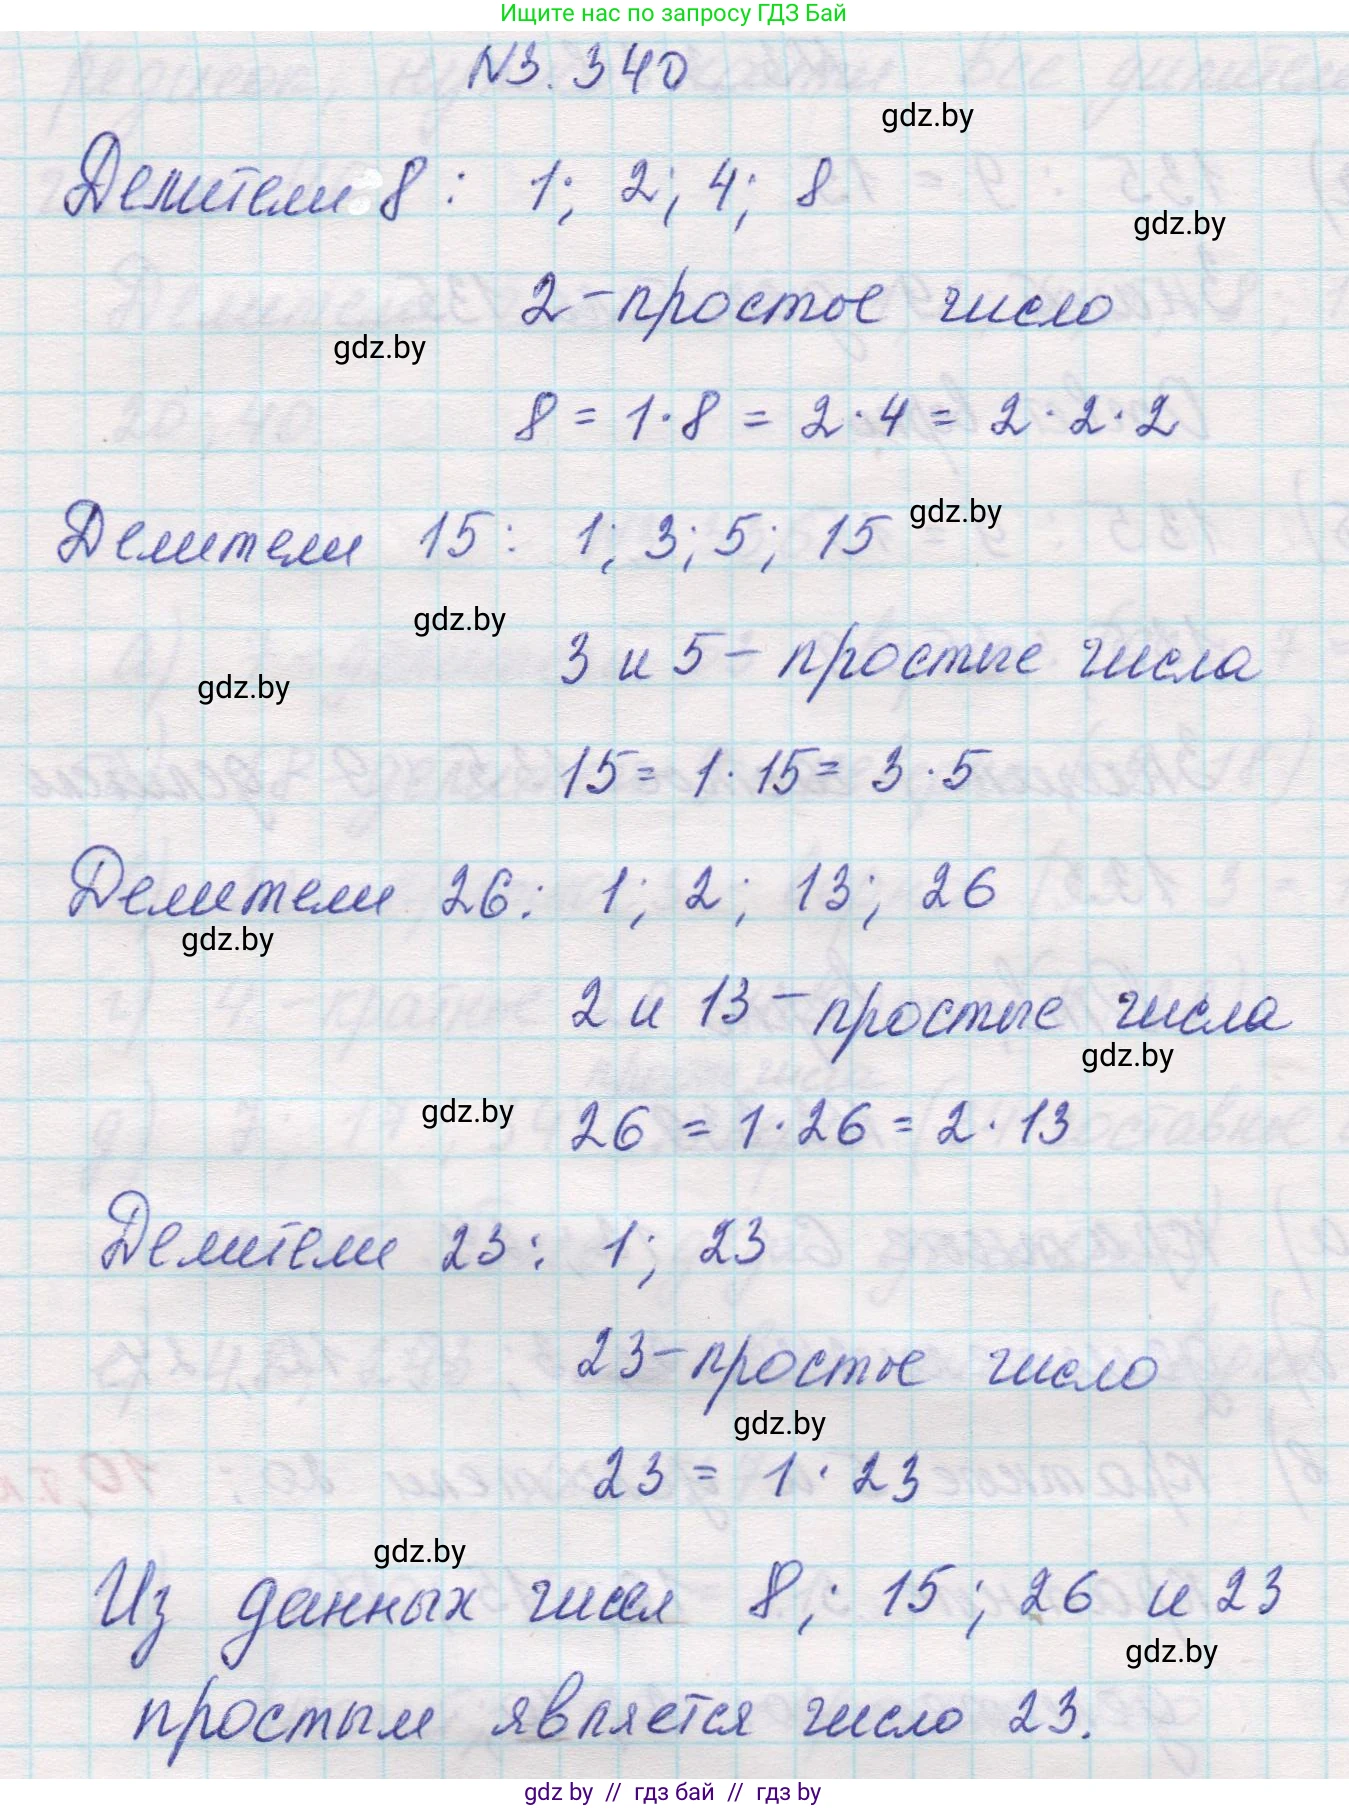 Ищите нас по запросу ГДЗ Бай
N3.340
gdz.by
Делители 8 : 1; 2; 4; 8
gdz.by
2 - простое число
gdz.by
8 = 1 · 8 = 2 · 4 = 2 · 2 · 2
Делители 15 : 1; 3; 5; 15
gdz.by
gdz.by
3 и 5 - простые числа
gdz.by
15 = 1 · 15 = 3 · 5
Делители 26 : 1; 2; 13; 26
gdz.by
2 и 13 - простые числа
gdz.by
gdz.by
26 = 1 · 26 = 2 · 13
Делители 23 : 1; 23
23 - простое число
gdz.by
23 = 1 · 23
gdz.by
Из данных чисел 8; 15; 26 и 23
gdz.by
простым является число 23.
gdz.by // гдз бай // гдз by